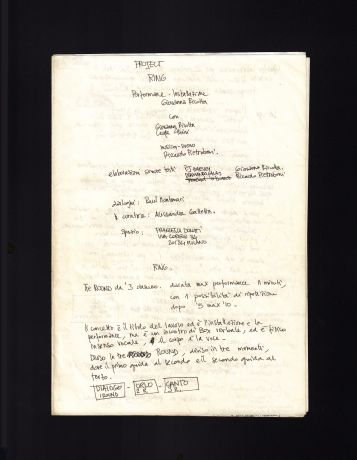 PROJECT
RING
Performance - Installazione
Giovanna
con
Giovanna
musica - suono
Riccardo Pietroboni
elaborazioni sonore testi PJ HARVEY Giovanna
Riccardo Pietroboni.
dialoghi: Paul Montanari
curatrice: Alessandra Galletta
Spazio: FRANCESCA
VIA
20134 MILANO
RING
Tre ROUND da 3' ciascuno. durata max performance 11 minuti,
con 1 possibilità di ripetizione
dopo 5 max 10...
Il concetto è il titolo del lavoro ed è l'installazione e la
performance, ma è un incontro di Box verbale, ed è fisico
in senso vocale, il corpo è la voce.
Diviso in tre ROUND, diviso in tre momenti,
dove il primo guida al secondo e il secondo guida al
terzo.
DIALOGO - URLO - CANTO
1 ROUND 2 R. 3 R.